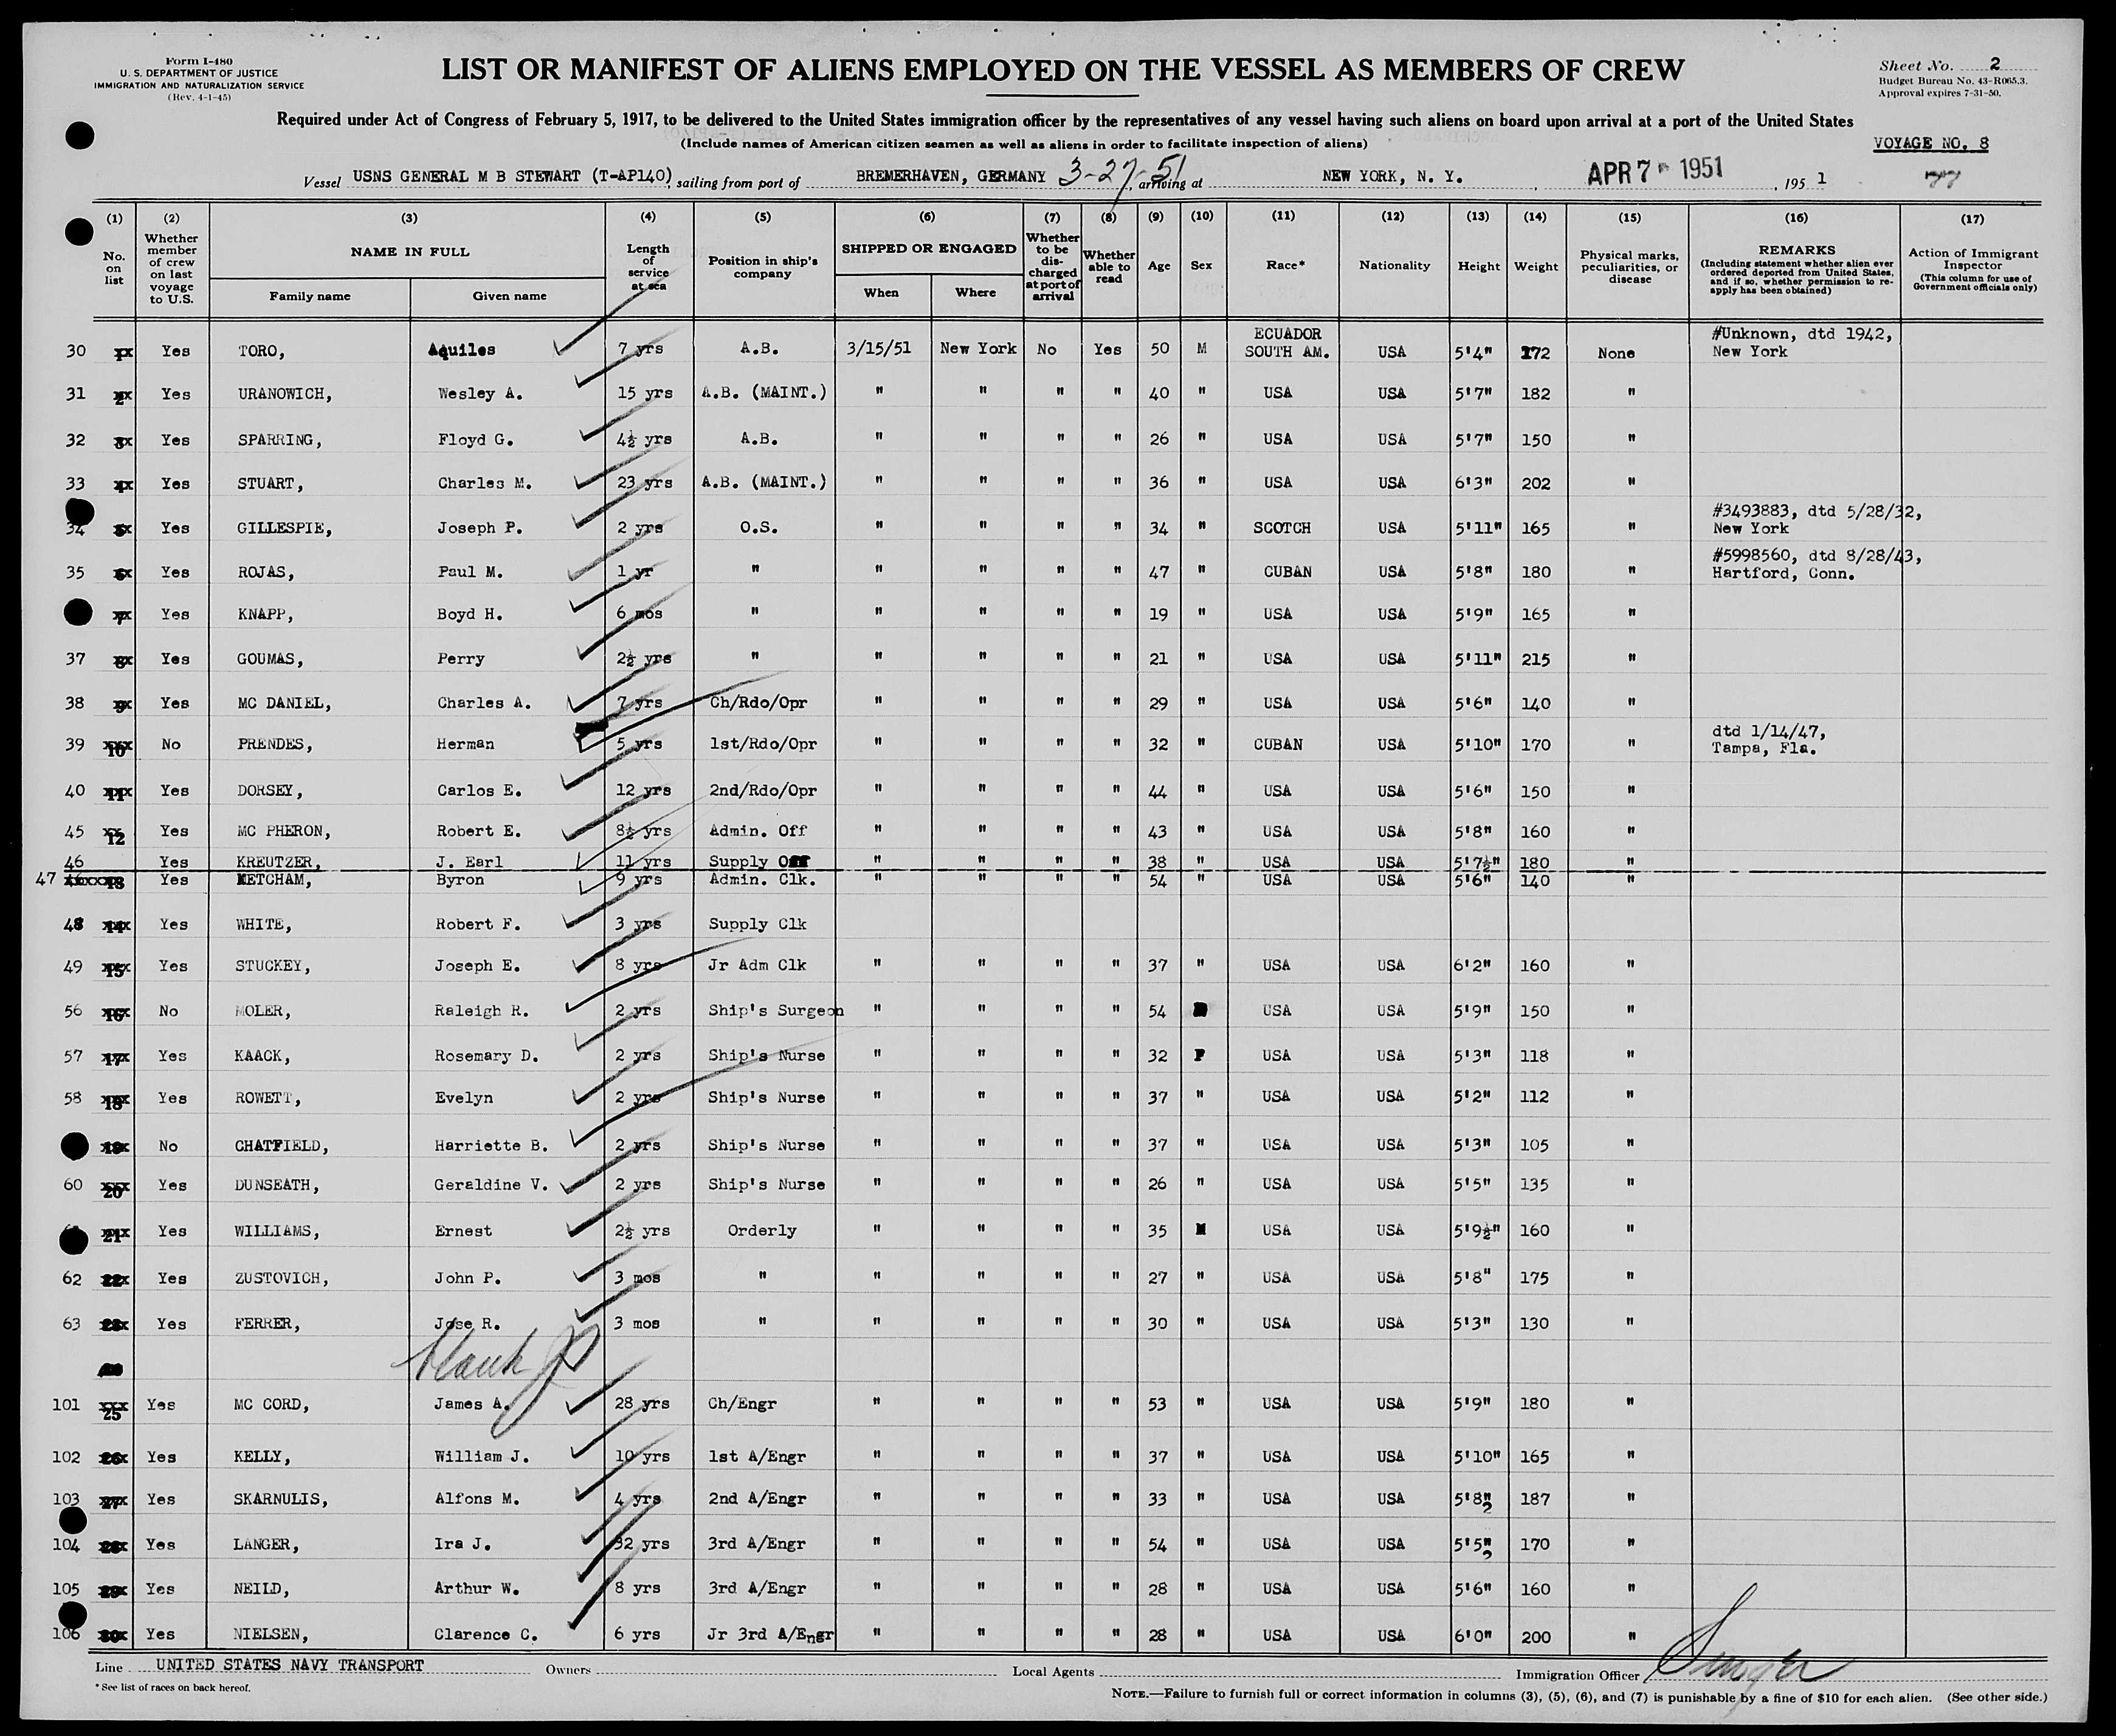 Form I-480
U. S. DEPARTMENT OF JUSTICE
IMMIGRATION AND NATURALIZATION SERVICE
(Rev. 4-1-45)
LIST OR MANIFEST OF ALIENS EMPLOYED ON THE VESSEL AS MEMBERS OF CREW
Sheet No. 2
Budget Bureau No. 43-R065.3.
Approval expires 7-31-50.
Required under Act of Congress of February 5, 1917, to be delivered to the United States immigration officer by the representatives of any vessel having such aliens on board upon arrival at a port of the United States
(Include names of American citizen seamen as well as aliens in order to facilitate inspection of aliens)
VOYAGE NO. 8
Vessel USNS GENERAL M B STEWART (T-AP140), sailing from port of BREMERHAVEN, GERMANY 3-27-51, arriving at NEW YORK, N. Y. APR 7 - 1951, 195 1
(1) (2) (3) (4) (5) (6) (7) (8) (9) (10) (11) (12) (13) (14) (15) (16) (17)
No. on list
Whether member of crew on last voyage to U.S.
NAME IN FULL
Family name
Given name
Length of service at sea
Position in ship's company
SHIPPED OR ENGAGED
When
Where
Whether to be discharged at port of arrival
Whether able to read
Age
Sex
Race*
Nationality
Height
Weight
Physical marks, peculiarities, or disease
REMARKS
(Including statement whether alien ever ordered deported from United States, and if so, whether permission to re-apply has been obtained)
Action of Immigrant Inspector
(This column for use of Government officials only)
30 Yes TORO, Aquiles 7 yrs A.B. 3/15/51 New York No Yes 50 M ECUADOR SOUTH AM. USA 5'4" 172 None #Unknown, dtd 1942, New York
31 2 Yes URANOWICH, Wesley A. 15 yrs A.B. (MAINT.) " " " " 40 " USA USA 5'7" 182 "
32 3 Yes SPARRING, Floyd G. 4½ yrs A.B. " " " " 26 " USA USA 5'7" 150 "
33 4 Yes STUART, Charles M. 23 yrs A.B. (MAINT.) " " " " 36 " USA USA 6'3" 202 "
34 5 Yes GILLESPIE, Joseph P. 2 yrs O.S. " " " " 34 " SCOTCH USA 5'11" 165 " #3493883, dtd 5/28/32, New York
35 6 Yes ROJAS, Paul M. 1 yr " " " " " 47 " CUBAN USA 5'8" 180 " #5998560, dtd 8/28/43, Hartford, Conn.
7 Yes KNAPP, Boyd H. 6 mos " " " " " 19 " USA USA 5'9" 165 "
37 8 Yes GOUMAS, Perry 2½ yrs " " " " " 21 " USA USA 5'11" 215 "
38 9 Yes MC DANIEL, Charles A. 7 yrs Ch/Rdo/Opr " " " " 29 " USA USA 5'6" 140 "
39 10 No PRENDES, Herman 5 yrs 1st/Rdo/Opr " " " " 32 " CUBAN USA 5'10" 170 " dtd 1/14/47, Tampa, Fla.
40 11 Yes DORSEY, Carlos E. 12 yrs 2nd/Rdo/Opr " " " " 44 " USA USA 5'6" 150 "
45 12 Yes MC PHERON, Robert E. 8½ yrs Admin. Off " " " " 43 " USA USA 5'8" 160 "
46 Yes KREUTZER, J. Earl 11 yrs Supply Off " " " " 38 " USA USA 5'7½" 180 "
47 13 Yes KETCHAM, Byron 9 yrs Admin. Clk. " " " " 54 " USA USA 5'6" 140 "
48 14 Yes WHITE, Robert F. 3 yrs Supply Clk
49 15 Yes STUCKEY, Joseph E. 8 yrs Jr Adm Clk " " " " 37 " USA USA 6'2" 160 "
56 16 No MOLER, Raleigh R. 2 yrs Ship's Surgeon " " " " 54 USA USA 5'9" 150 "
57 17 Yes KAACK, Rosemary D. 2 yrs Ship's Nurse " " " " 32 F USA USA 5'3" 118 "
58 18 Yes ROWETT, Evelyn 2 yrs Ship's Nurse " " " " 37 " USA USA 5'2" 112 "
19 No CHATFIELD, Harriette B. 2 yrs Ship's Nurse " " " " 37 " USA USA 5'3" 105 "
60 20 Yes DUNSEATH, Geraldine V. 2 yrs Ship's Nurse " " " " 26 " USA USA 5'5" 135 "
21 Yes WILLIAMS, Ernest 2½ yrs Orderly " " " " 35 M USA USA 5'9½" 160 "
62 22 Yes ZUSTOVICH, John P. 3 mos " " " " " 27 " USA USA 5'8" 175 "
63 23 Yes FERRER, Jose R. 3 mos " " " " " 30 " USA USA 5'3" 130 "
blank
101 25 Yes MC CORD, James A. 28 yrs Ch/Engr " " " " 53 " USA USA 5'9" 180 "
102 26 Yes KELLY, William J. 10 yrs 1st A/Engr " " " " 37 " USA USA 5'10" 165 "
103 27 Yes SKARNULIS, Alfons M. 4 yrs 2nd A/Engr " " " " 33 " USA USA 5'8" 187 "
104 28 Yes LANGER, Ira J. 32 yrs 3rd A/Engr " " " " 54 " USA USA 5'5" 170 "
105 29 Yes NEILD, Arthur W. 8 yrs 3rd A/Engr " " " " 28 " USA USA 5'6" 160 "
106 30 Yes NIELSEN, Clarence C. 6 yrs Jr 3rd A/Engr " " " " 28 " USA USA 6'0" 200 "
Line UNITED STATES NAVY TRANSPORT Owners Local Agents Immigration Officer
*See list of races on back hereof.
NOTE.—Failure to furnish full or correct information in columns (3), (5), (6), and (7) is punishable by a fine of $10 for each alien. (See other side.)